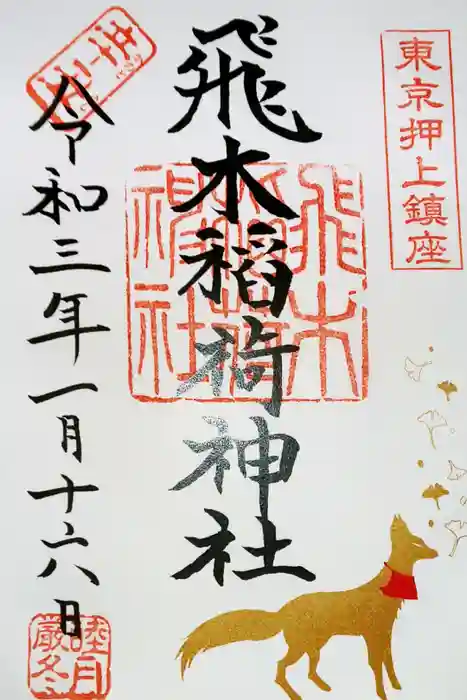 東京押上鎮座
飛木稲荷神社
飛木稲荷神社
令和三年一月十六日
睦月
厳冬